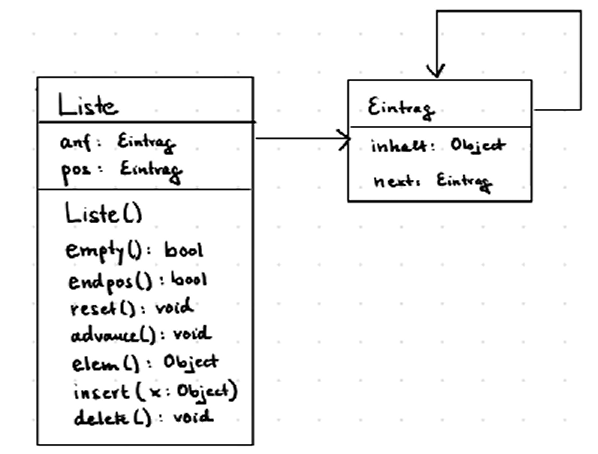 Liste
anf: Eintrag
pos: Eintrag
Liste()
empty(): bool
endpos(): bool
reset(): void
advance(): void
elem(): Object
insert(x: Object)
delete(): void
Eintrag
inhalt: Object
next: Eintrag